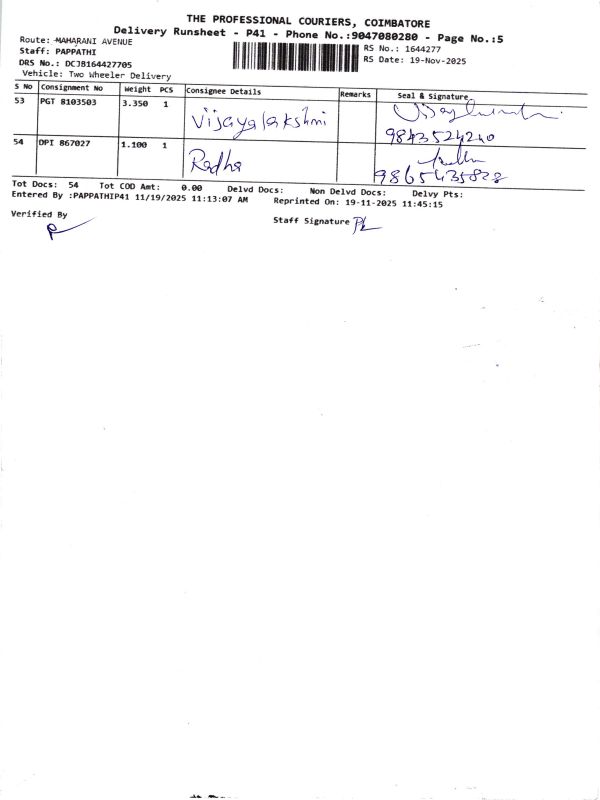 THE PROFESSIONAL COURIERS, COIMBATORE
Delivery Runsheet - P41 - Phone No.:9047080280 - Page No.:5
Route: MAHARANI AVENUE
RS No.: 1644277
Staff: PAPPATHI
RS Date: 19-Nov-2025
DRS No.: DCJB164427705
Vehicle: Two Wheeler Delivery
S No Consignment No Weight PCS Consignee Details Remarks Seal & Signature
53 PGT 8103503 3.350 1 Vijayalakshmi
9843524240
54 DPI 867027 1.100 1 Radha
9865435828
Tot Docs: 54 Tot COD Amt: 0.00 Delvd Docs: Non Delvd Docs: Delvy Pts:
Entered By :PAPPATHIP41 11/19/2025 11:13:07 AM Reprinted On: 19-11-2025 11:45:15
Verified By
Staff Signature